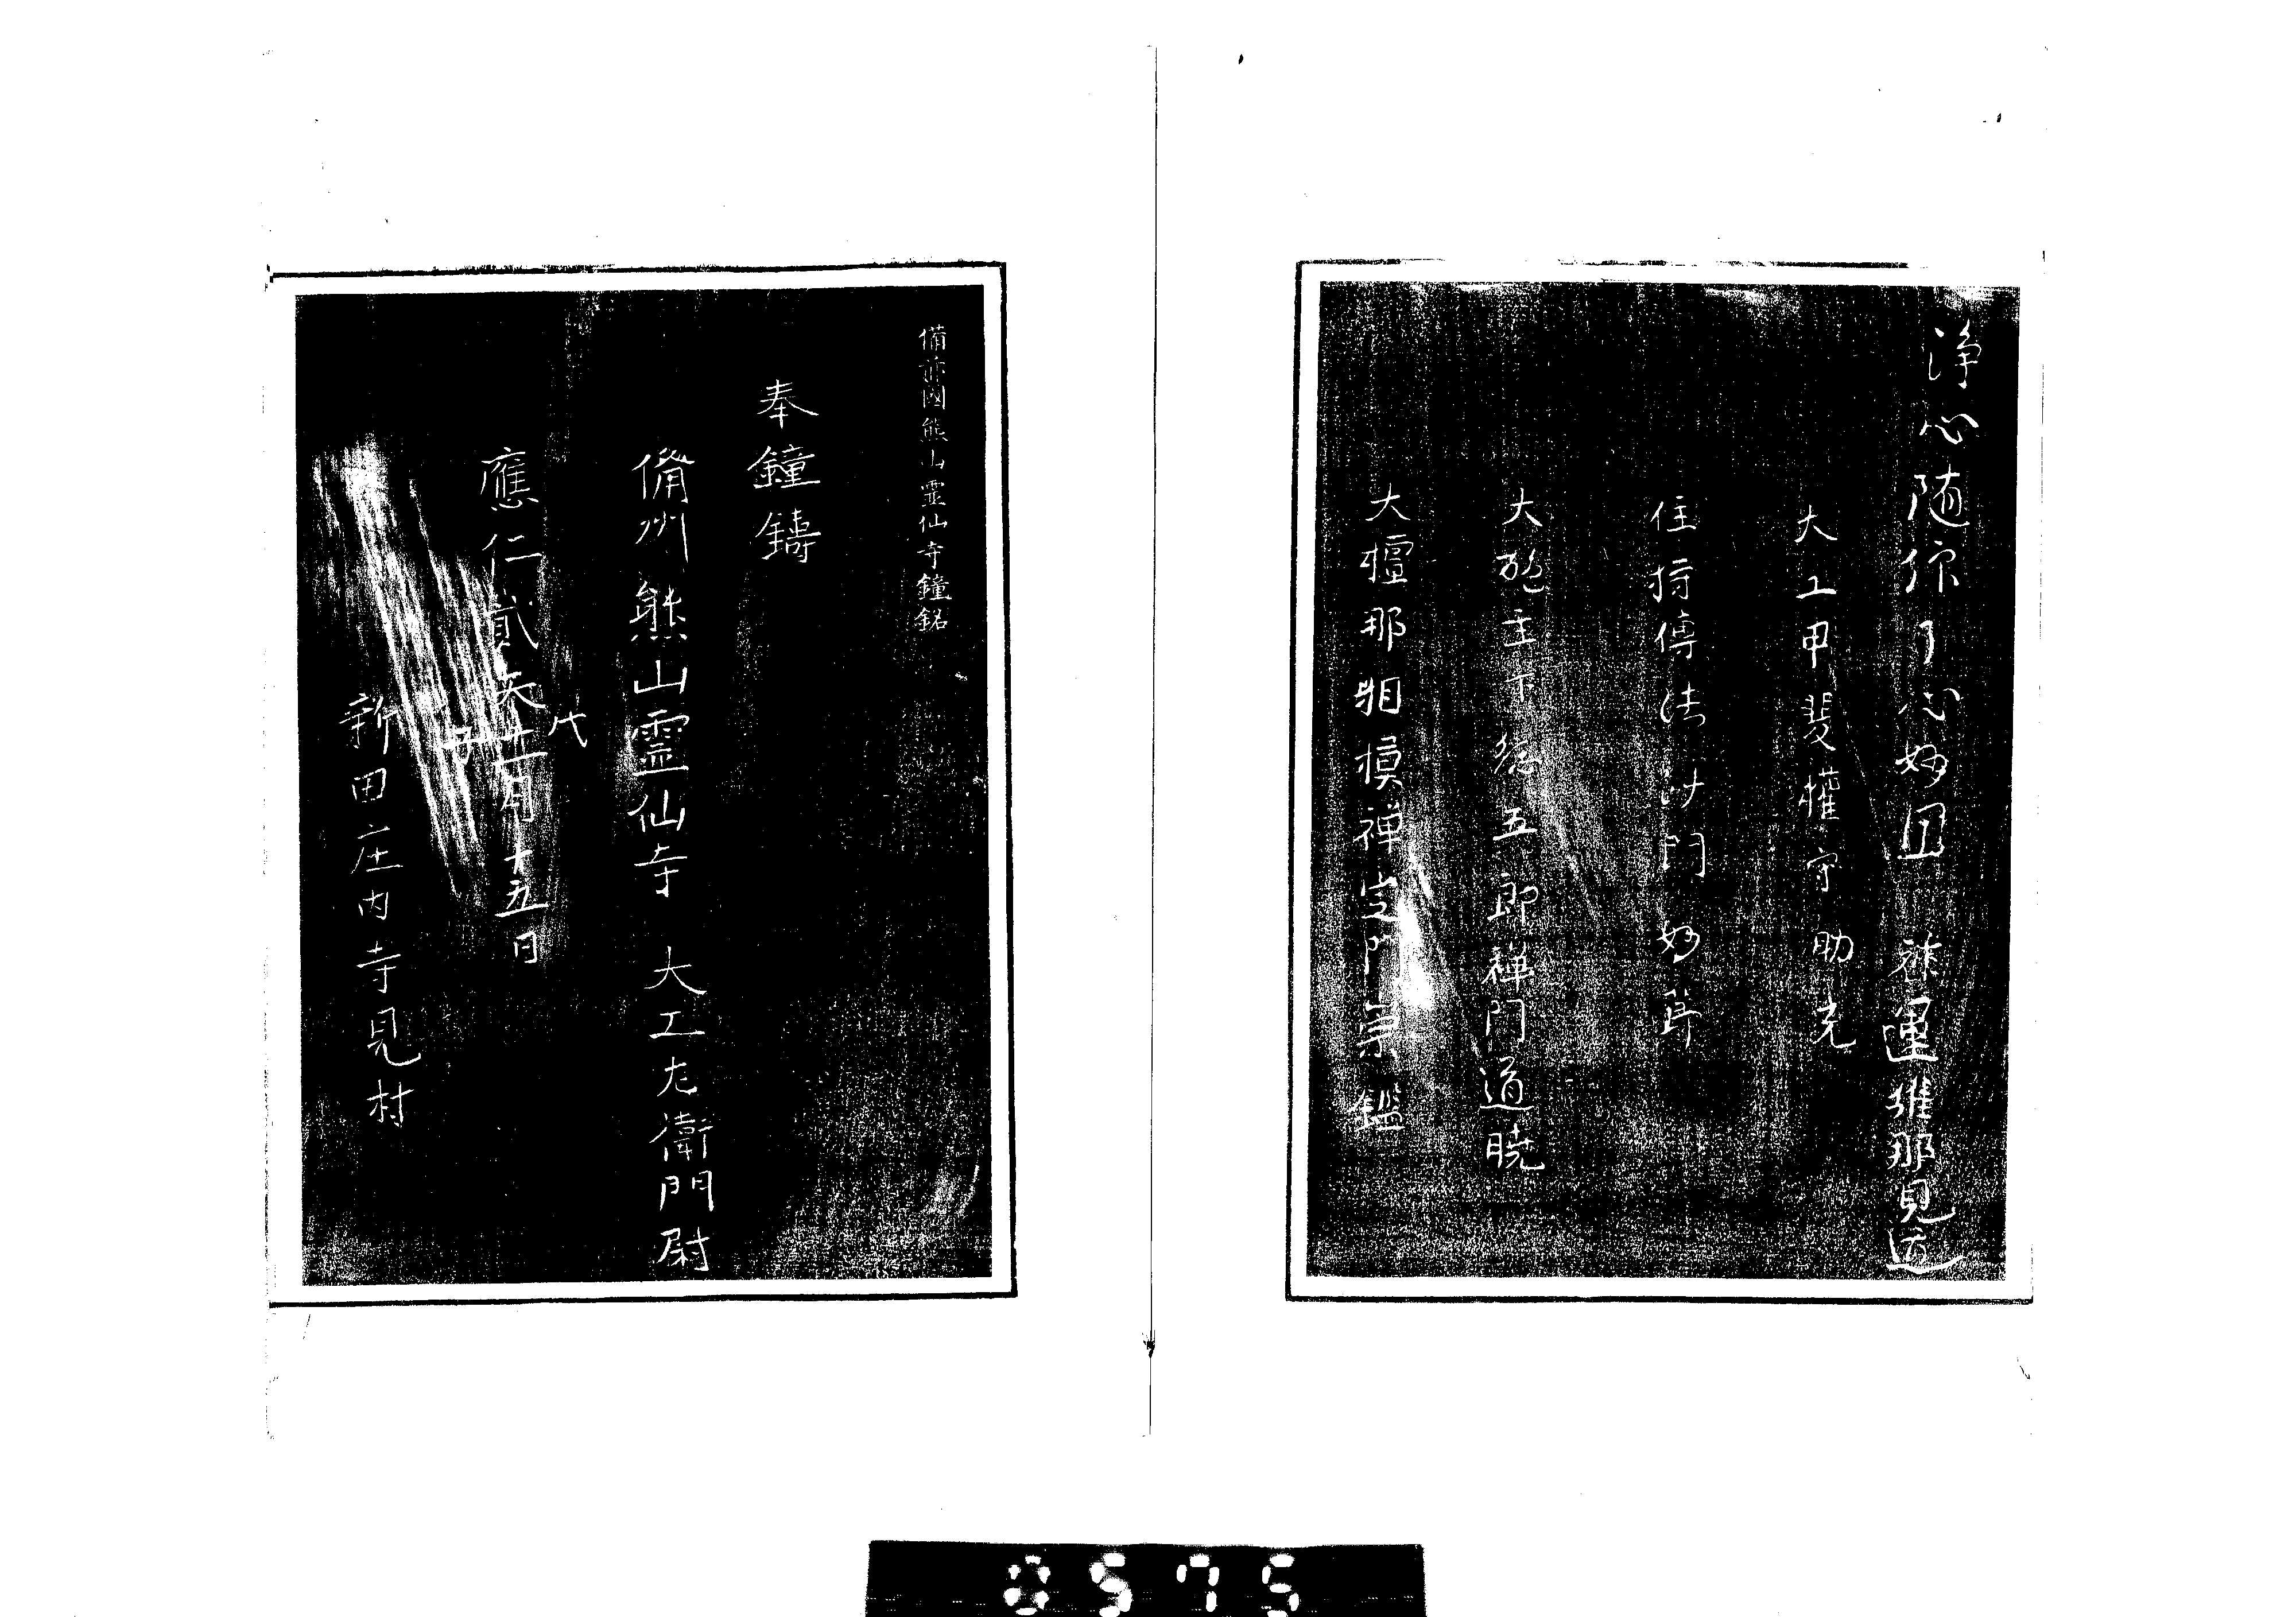 淨心随縁了心妙因 維那見道
大工甲斐権守助光
住持傳法沙門妙
大施主下総五郎禅門道暁
大檀那相模禅定門崇鑑
備前國熊山霊仙寺鐘銘
奉鐘鋳
俻州熊山霊仙寺 大工左衛門尉
應仁貳天戊子十一月十五日
新田庄内寺見村
0575